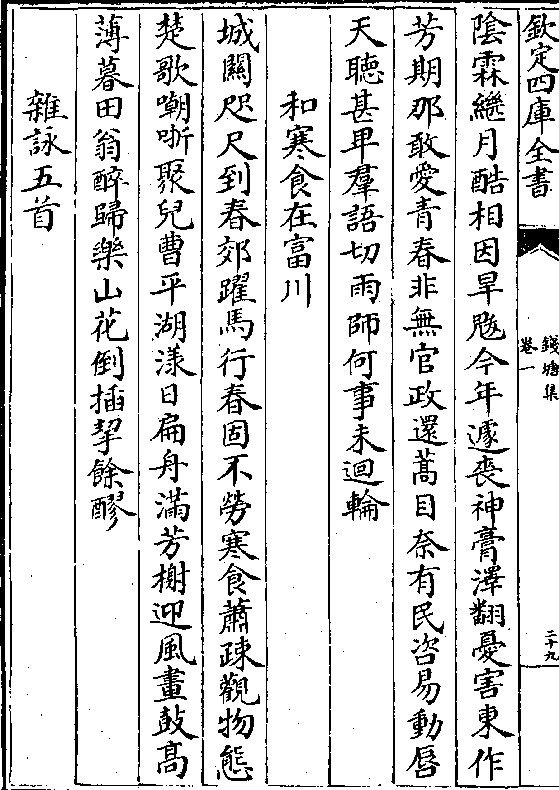 欽定四庫全書
錢塘集
卷一
二十九
陰霖繼月酷相因旱魃今年遽喪神膏澤翻憂害東作
芳期那敢愛青春非無官政還蒿目奈有民咨易動唇
天聽甚卑羣語切雨師何事未迴輪
和寒食在富川
城闕咫尺到春郊躍馬行春固不勞寒食蕭疎觀物態
楚歌嘲哳聚兒曹平湖漾日扁舟滿芳榭迎風畫鼓高
薄暮田翁醉歸樂山花倒插挈餘醪
雜詠五首